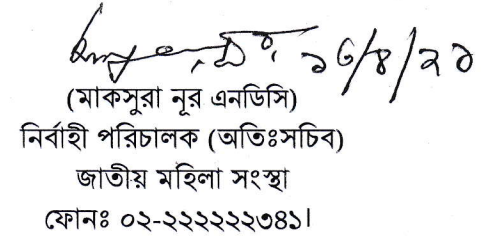 ১৬/৪/২১
(মাকসুরা নূর এনডিসি)
নির্বাহী পরিচালক (অতিঃসচিব)
জাতীয় মহিলা সংস্থা
ফোনঃ ০২-২২২২২২৩৪১।